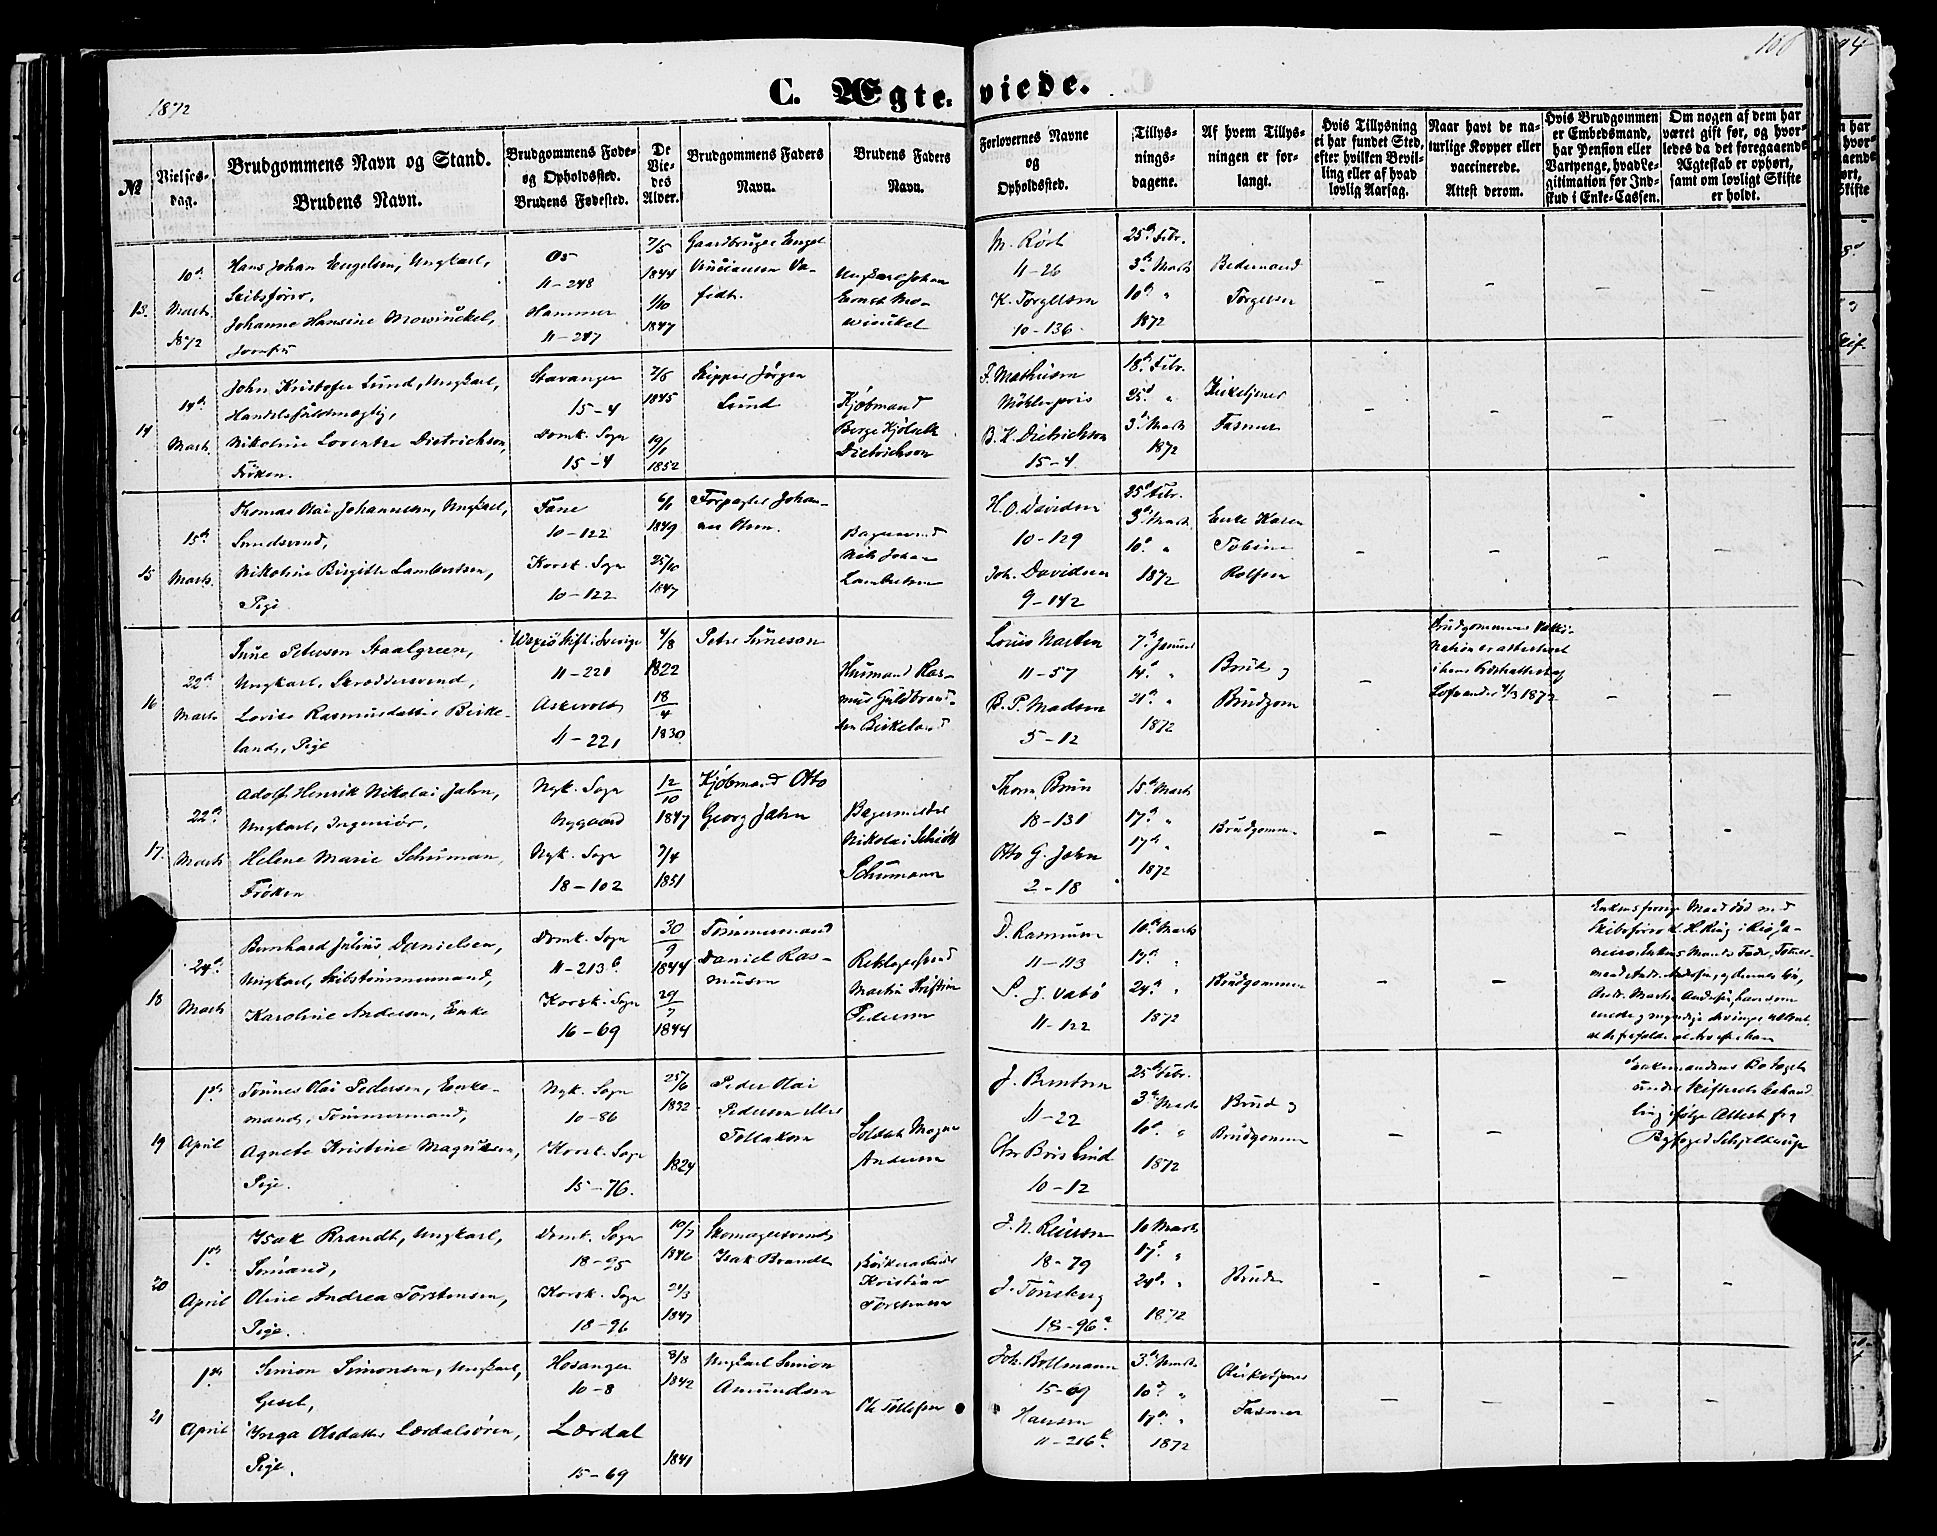 1872
C. Ægteviede.
100
No
Vielsesdag.
Brudgommens Navn og Stand.
Brudens Navn.
Brudgommens Fødeog Opholdssted.
Brudens Fødested.
De Viedes Alder.
Brudgommens Faders Navn.
Brudens Faders Navn.
Forlovernes Navne og Opholdssted.
Tillysningsdagene.
Af hvem Tillysningen er forlangt.
Hvis Tillysning ei har fundet Sted, efter hvilken Bevilling eller af hvad lovlig Aarsag.
Naar havt de naturlige Kopper eller vaccinerede. Attest derom.
Hvis Brudgommen er Embedsmand, har Pension eller Vartpenge, hvad Legitimation for Indskud i Enke-Cassen.
Om nogen af dem har været gift før, og hvorledes da det foregaaende Ægteskab er ophørt, samt om lovligt Skifte er holdt.
13.
10de Marts 1872
Hans Johan Engelsen, Ungkarl,
Skibsfører,
Johanne Hansine Mowinckel,
Jomfru
Os
11-248
Hammer
11-247
7/5 1844
1/10 1847
Gaardbruger Engel
Ungkarl Johan
Ernst Mowinckel
M. Rørt
11-26
K. Torgelsen
10-136
25de Febr.
3de Marts
10de "
1872
Bedemand
Torgelsen
14
14de Marts.
John Kristofer Lund, Ungkarl,
Handelsfuldmægtig,
Nikoline Lorentze Dietrichson,
Frøken.
Stavanger
15-4
Domk. Sogn
15-4
2/6 1845
19/1 1852
Skipper Jørgen
Lund
Kjøbmand
Berge Kjølseth
Dietrichson
F. Mathiesen
Møhlenpris
B. K. Dietrichson
15-4
18de Febr.
25de "
3de Marts
1872
Kirketjener
Fasmer
15
15de Marts.
Thomas Olai Johannesen, Ungkarl,
Svendsvend,
Nikoline Birgitte Lambertsen,
Pige
Fane
10-122
Korsk. Sogn
10-122
6/1 1849
25/10 1847
Forpagter Johannes
Bagersvend
Nils Johan
Lambertsen
H. O. Davidsen
10-129
Joh. Davidsen
9-142
25de Febr.
3de Marts
10de "
1872
Enke Karen
Tobine
Rolfsen
16
22de Marts
Sune Petersen Staalgreen,
Ungkarl, Skræddersvend,
Lovise Rasmusdatter Birkeland,
Pige
Wexiö Stift i Sverige
11-221
Askevold
11-221
4/8 1822
18/4 1830
Peter Suneson
Husmand Rasmus
Guldbrandsen
Birkeland
Louis Martin
11-57
B. P. Madsen
5-12
7de Januar
14de "
21de "
1872
Brud og
Brudgom
Brudgommens Vakcination
er attesteret
i hans Friskattestaf
4/3 1872
17.
22de Marts
Adolf Henrik Nikolai Jahn,
Ungkarl, Ingeniør,
Helene Marie Schuman,
Frøken
Nyk. Sogn
Nygaard
Nyk. Sogn
18-102
12/10 1847
7/4 1851
Kjøbmand Otto
Georg Jahn
Bagermester
Nikolai Schiøtt
Schumann
Thom. Bruun
18-131
Otto G. Jahn
2-18
15de Marts
17de "
17de "
1872
Brudgommen
18
24de Marts
Bernhard Julius Danielsen,
Ungkarl, Skibstømmermand,
Karoline Andersen, Enke
Domk. Sogn
11-213b
Korsk. Sogn
16-69
30/9 1844
29/7 1844
Tømmermand
Daniel Rasmusen
Rebslagersvend
Martin Kristian
Pedersen
D. Rasmusen
11-113
P. J. Vabø
11-122
10de Marts
17de "
24de "
1872
Brudgommen
Enkens forrige Mand død med
19
1ste April
Tønnes Olai Pedersen, Enkemand,
Tømmermand,
Agnete Kristine Magnussen,
Pige.
Nyk. Sogn
10-86
Korsk. Sogn
15-76.
25/6 1832
1824
Peder Olai
Pedersen
Soldat Magne
Andersen
J. Berntsen
11-22
10-12
25de Febr.
3de Marts
10de "
1872
Brud og
Brudgommen
Enkemandens Bo taget
under Skifterets Behandling
ifølge Attest fra
Byfoged Schjelderup
20
1ste April
Isak Brandt, Ungkarl,
Sømand,
Oline Andrea Torstensen,
Pige.
Domk. Sogn
18-95
Korsk. Sogn
18-96
10/7 1846
21/3 1847
Skomagersvend
Isak Brandt
Bødkerarbeider
Kristian
Torstensen
J. N. Reiersen
18-79
J. Tønsberg
18-96a
10 Marts
17de "
24de "
1872
Bruden
21
1ste April
Simon Simonsen, Ungkarl,
Gesel,
Inga Olsdatter Lærdalsøren,
Pige.
Hosanger
10-8
Lærdal
15-69
8/8 1842
1841
Ungkarl Simon
Amundsen
Ole Tollefsen
Joh. Bollmann
15-69
Hansen
11-216b.
3de Marts
10de "
17de "
1872
Kirketjener
Fasmer